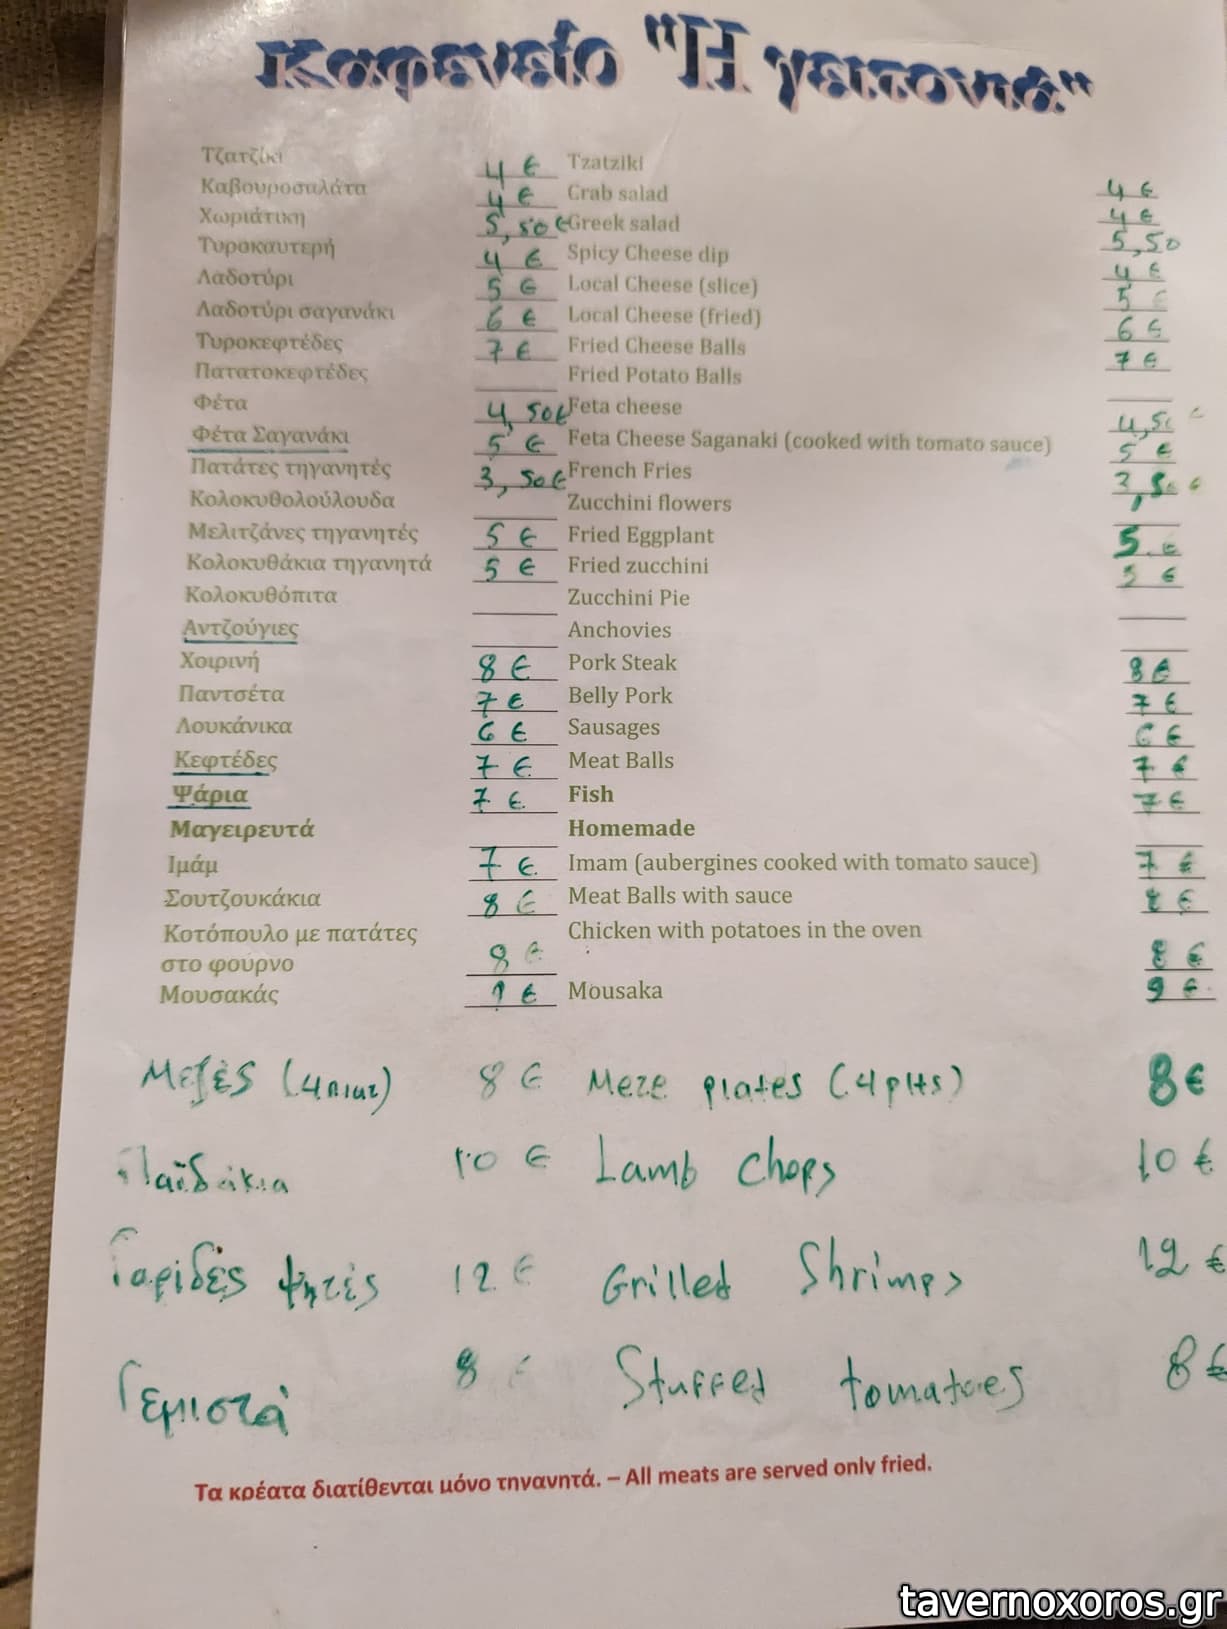 Καφενείο "Η γειτονιά"
Τζατζίκι 4 € Tzatziki 4 €
Καβουροσαλάτα 4 € Crab salad 4 €
Χωριάτικη 5,50 € Greek salad 5,50
Τυροκαυτερή 4 € Spicy Cheese dip 4 €
Λαδοτύρι 5 € Local Cheese (slice) 5 €
Λαδοτύρι σαγανάκι 6 € Local Cheese (fried) 6 €
Τυροκεφτέδες 7 € Fried Cheese Balls 7 €
Πατατοκεφτέδες Fried Potato Balls
Φέτα 4,50€ Feta cheese 4,50 €
Φέτα Σαγανάκι 5 € Feta Cheese Saganaki (cooked with tomato sauce) 5 €
Πατάτες τηγανητές 3,50€ French Fries 3,50 €
Κολοκυθολούλουδα Zucchini flowers
Μελιτζάνες τηγανητές 5 € Fried Eggplant 5 €
Κολοκυθάκια τηγανητά 5 € Fried zucchini 5 €
Κολοκυθόπιτα Zucchini Pie
Αντζούγιες Anchovies
Χοιρινή 8 € Pork Steak 8 €
Παντσέτα 7 € Belly Pork 7 €
Λουκάνικα 6 € Sausages 6 €
Κεφτέδες 7 € Meat Balls 7 €
Ψάρια 7 € Fish 7 €
Μαγειρευτά Homemade
Ιμάμ 7 € Imam (aubergines cooked with tomato sauce) 7 €
Σουτζουκάκια 8 € Meat Balls with sauce 8 €
Κοτόπουλο με πατάτες Chicken with potatoes in the oven
στο φουρνο 8 € 8 €
Μουσακάς 9 € Mousaka 9 €
Μεζές (4 πιατ) 8 € Meze plates (4 plts) 8 €
Παϊδάκια 10 € Lamb Chops 10 €
Γαρίδες ψητές 12 € Grilled Shrimps 12 €
Γεμιστά 8 € Stuffed tomatoes 8 €
Τα κρέατα διατίθενται μόνο τηγανητά. – All meats are served only fried.
tavernoxoros.gr